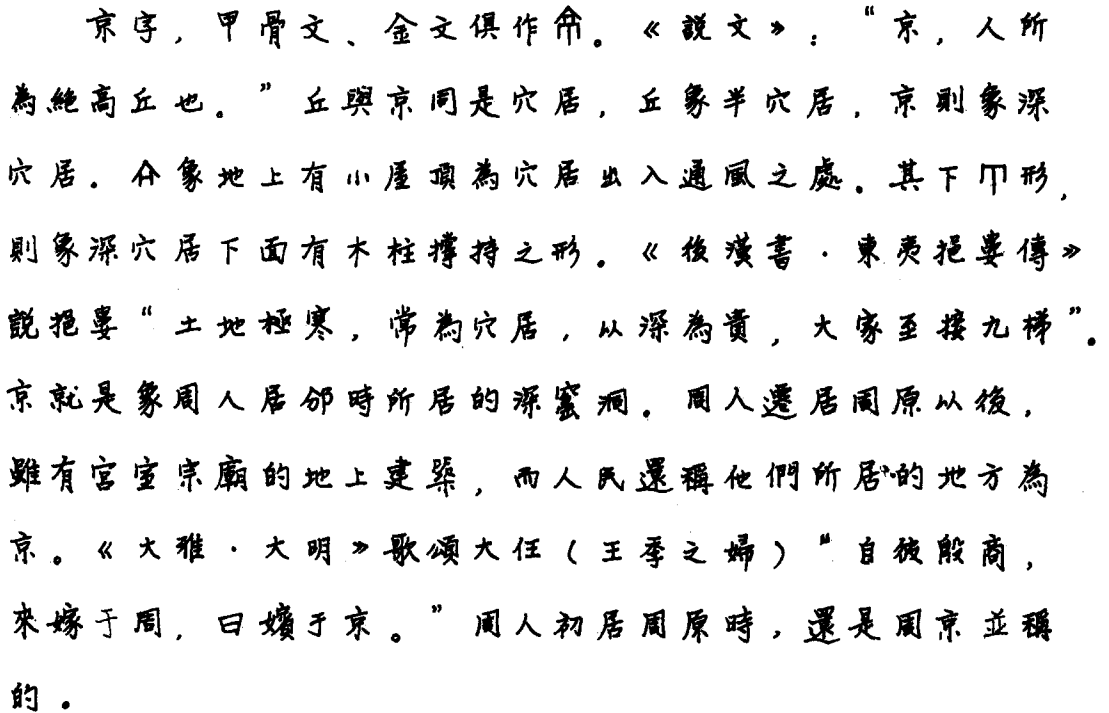 京字，甲骨文、金文俱作。《說文》：“京，人所
為絕高丘也。”丘與京同是穴居，丘象半穴居，京則象深
穴居。象地上有小屋頂為穴居出入通風之處。其下形，
則象深穴居下面有木柱撐持之形。《後漢書·東夷挹婁傳》
說挹婁“土地極寒，常為穴居，以深為貴，大家至接九梯”。
京就是象周人居邠時所居的深窰洞。周人遷居周原以後，
雖有宮室宗廟的地上建築，而人民還稱他們所居的地方為
京。《大雅·大明》歌頌大任（王季之婦）“自彼殷商，
來嫁于周，曰嬪于京。”周人初居周原時，還是周京並稱
的。